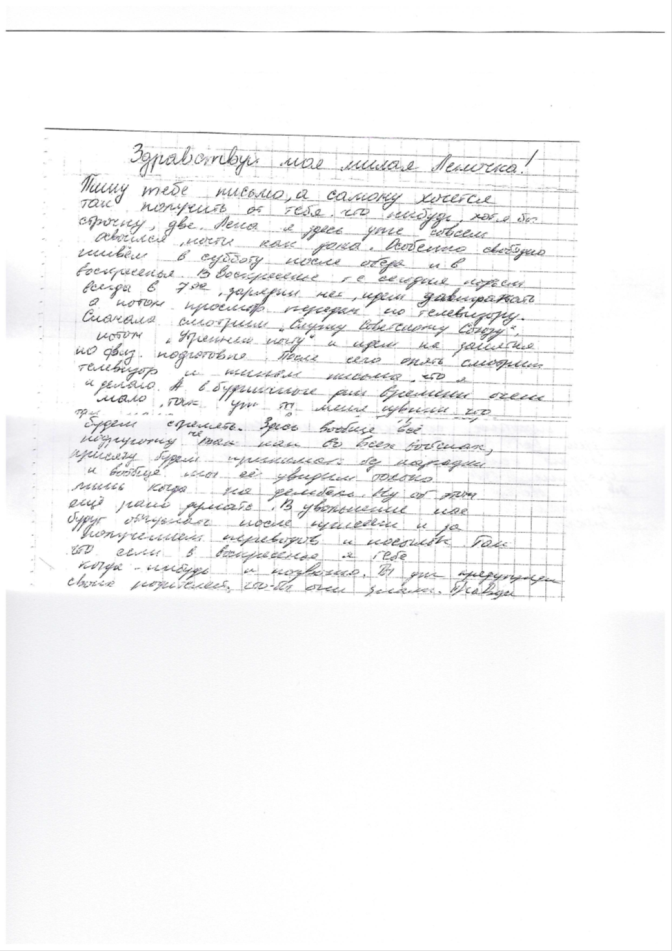 Здравствуй моя милая Леночка!
Пишу тебе письмо, а самому хочется
так получить от тебя что нибудь, хотя бы
строчку, две. Лена я здесь уже совсем
освоился, почти как дома. Особенно свободно
живём в субботу после обеда и в
воскресенье. В воскресенье т.е сегодня подъем
всегда в 7 00, зарядки нет, идем завтракать
а потом просмотр передач по телевизору.
Сначала смотрим "Служу Советскому Союзу",
потом "Утреннюю почту" и идем на занятия
по физ. подготовке. После чего опять смотрим
телевизор и пишем письма, что я
и делаю. А в будничные дни времени очень
мало, так уж ты меня извини что
будем стрелять. Здесь вообще всё
подругому не так как во всех войсках,
присягу будем принимать без
и вообще мы её увидим только
лишь когда на дембель. Ну об этом
ещё рано думать. В увольнение нас
будут отпускать после присяги и за
получением переводов и посылок. Так
что если в воскресенье я тебе
когда-нибудь и позвоню. Ты уж предупреди
своих родителей, что-бы они знали. Правда